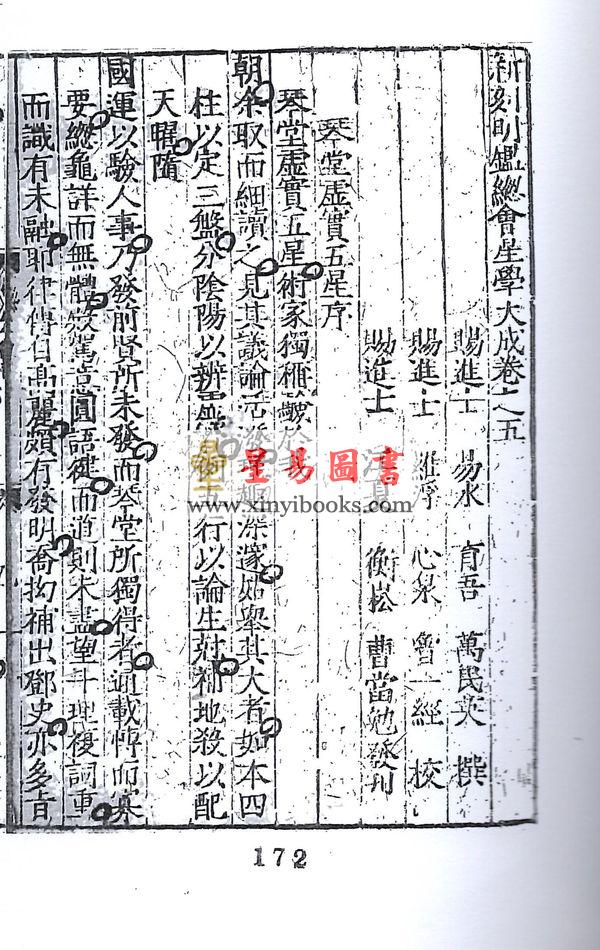 新刻明鑑總會星學大成卷之五
賜進士 易水 育吾 萬民英 撰
賜進士 心泉 魯一經 校
賜進士 衡崧 曹當勉發刊
琴堂虛實五星序
琴堂虛實五星術家獨稱
朝余取而細讀之見其議論活潑 趣深邃姑舉其大者如本四
柱以定三盤分陰陽以辨 五行以論生尅補地殺以配
天曜隨
國運以驗人事乃發前賢所未發而琴堂所獨得者通載博而寡
要總龜詳而無體 意圓語健而道則未盡望斗理複詞重
而識有未融耶律傳自高麗頗有發明喬拗補出鄧史亦多首
星易圖書
www.xinyibooks.com
172